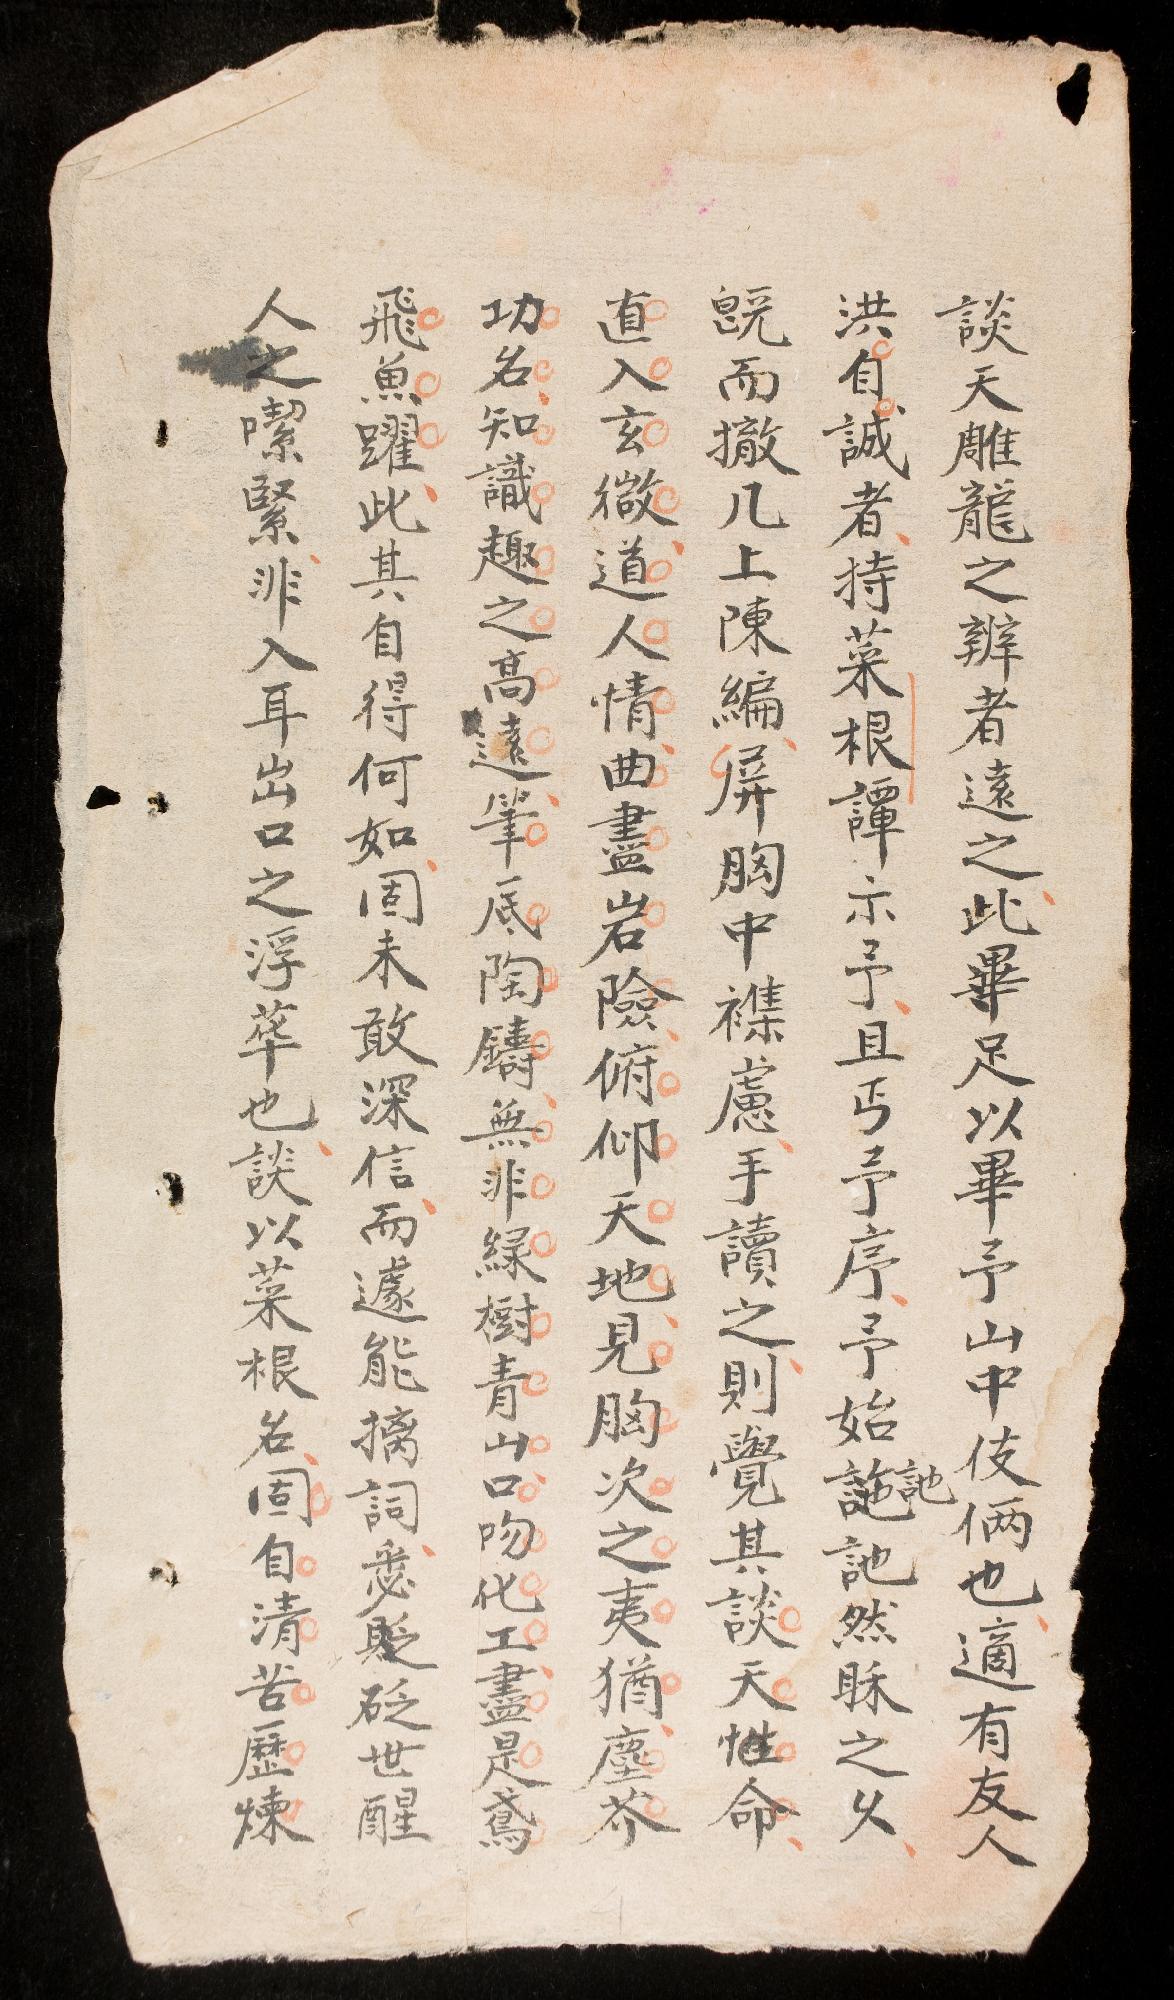 談天雕龍之辨者遠之此畢足以畢予山中伎倆也適有友人
洪自誠者持菜根譚示予且丐予序予始訑訑訑然眎之乆
旣而撤几上陳編屏胸中襍慮手讀之則覺其談天性命
直入玄微道人情曲盡岩險俯仰天地見胸次之夷猶塵芥
功名知識趣之高遠筆底陶鑄無非緑樹青山口吻化工盡是鳶
飛魚躍此其自得何如固未敢深信而遽能摛詞悉貶砭世醒
人之喫緊非入耳出口之浮華也談以菜根名固自清苦歷煉